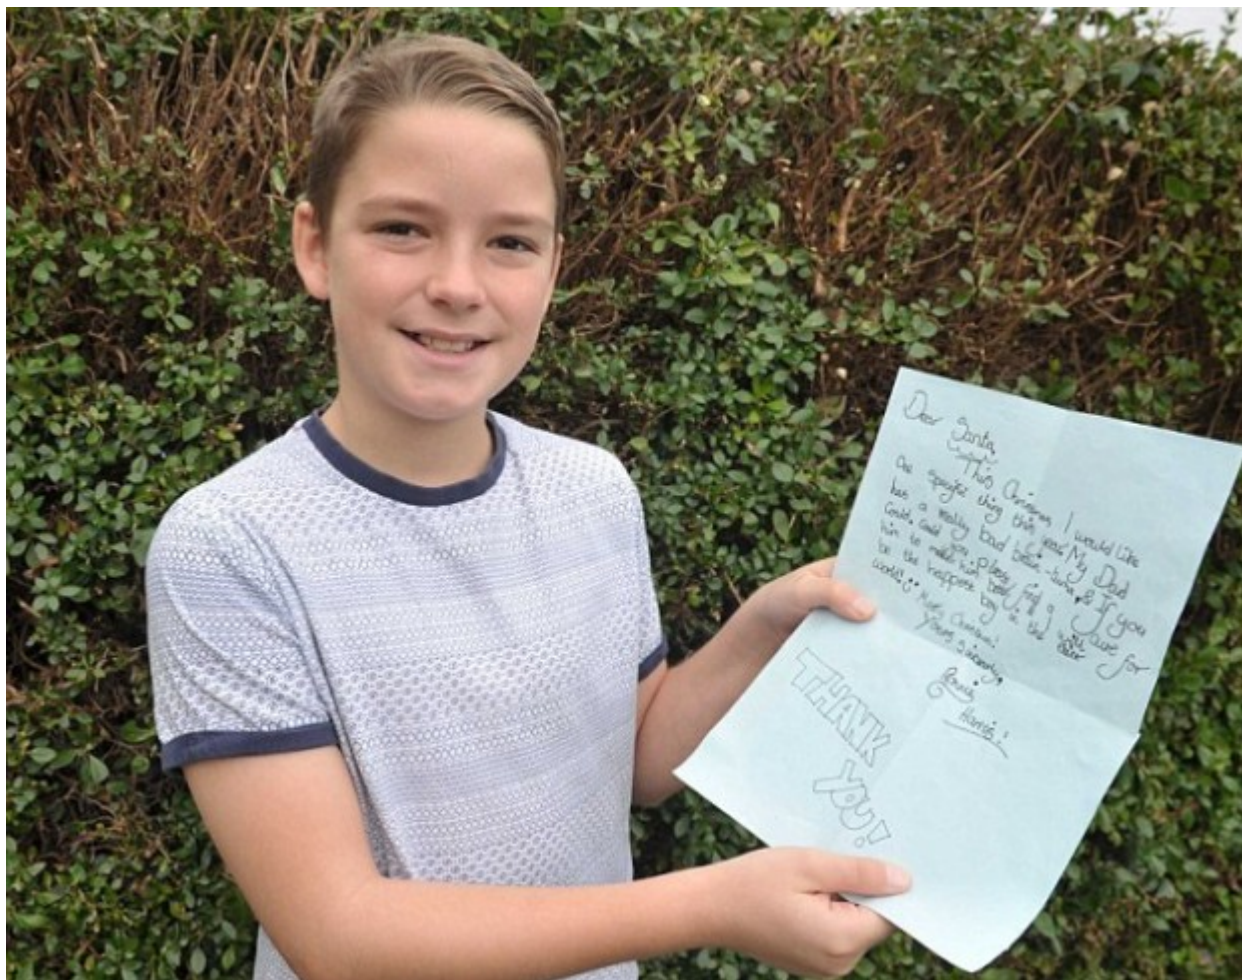 Dear Santa,
This Christmas I would like
One specific thing this year. My Dad
has a really bad brain-tumor, & if you
Could, Could you please find a cure for
him to make him better. I will
be the happiest boy in the
world!
Merry Christmas!
Yours sincerely,
Harris!
THANK
YOU!